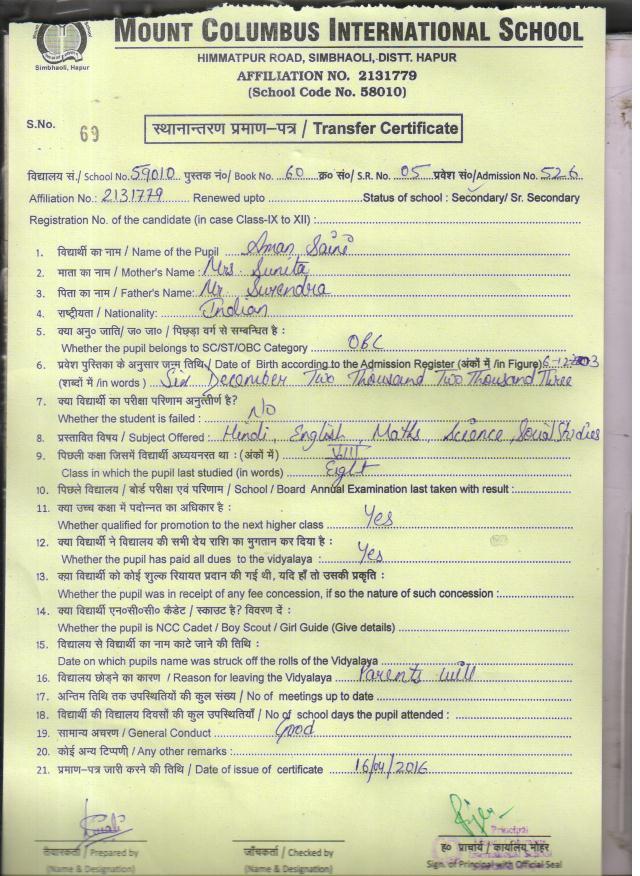 Simbhaoli, Hapur
MOUNT COLUMBUS INTERNATIONAL SCHOOL
HIMMATPUR ROAD, SIMBHAOLI, DISTT. HAPUR
AFFILIATION NO. 2131779
(School Code No. 58010)
S.No. 69
स्थानान्तरण प्रमाण–पत्र / Transfer Certificate
विद्यालय सं./ School No. 59010 पुस्तक नं०/ Book No. 60 क्र० सं०/ S.R. No. 05 प्रवेश सं०/Admission No. 526
Affiliation No.: 2131779 Renewed upto Status of school : Secondary/ Sr. Secondary
Registration No. of the candidate (in case Class-IX to XII) :
1. विद्यार्थी का नाम / Name of the Pupil Aman Saini
2. माता का नाम / Mother's Name : Mrs. Sunita
3. पिता का नाम / Father's Name: Mr. Surendra
4. राष्ट्रीयता / Nationality: Indian
5. क्या अनु० जाति/ ज० जा० / पिछड़ा वर्ग से सम्बन्धित है :
Whether the pupil belongs to SC/ST/OBC Category OBC
6. प्रवेश पुस्तिका के अनुसार जन्म तिथि / Date of Birth according to the Admission Register (अंकों में /in Figure) 6-12-2003
(शब्दों में /in words ) Six December Two Thousand Two Thousand Three
7. क्या विद्यार्थी का परीक्षा परिणाम अनुत्तीर्ण है?
Whether the student is failed : No
8. प्रस्तावित विषय / Subject Offered : Hindi, English, Maths, Science, Social Studies
9. पिछली कक्षा जिसमें विद्यार्थी अध्ययनरत था : (अंकों में) VIII
Class in which the pupil last studied (in words) Eight
10. पिछले विद्यालय / बोर्ड परीक्षा एवं परिणाम / School / Board Annual Examination last taken with result :
11. क्या उच्च कक्षा में पदोन्नत का अधिकार है :
Whether qualified for promotion to the next higher class Yes
12. क्या विद्यार्थी ने विद्यालय की सभी देय राशि का भुगतान कर दिया है :
Whether the pupil has paid all dues to the vidyalaya : Yes
13. क्या विद्यार्थी को कोई शुल्क रियायत प्रदान की गई थी, यदि हाँ तो उसकी प्रकृति :
Whether the pupil was in receipt of any fee concession, if so the nature of such concession :
14. क्या विद्यार्थी एन०सी०सी० कैडेट / स्काउट है? विवरण दें :
Whether the pupil is NCC Cadet / Boy Scout / Girl Guide (Give details)
15. विद्यालय से विद्यार्थी का नाम काटे जाने की तिथि :
Date on which pupils name was struck off the rolls of the Vidyalaya
16. विद्यालय छोड़ने का कारण / Reason for leaving the Vidyalaya Parents will
17. अन्तिम तिथि तक उपस्थितियों की कुल संख्य / No of meetings up to date
18. विद्यार्थी की विद्यालय दिवसों की कुल उपस्थितियाँ / No of school days the pupil attended :
19. सामान्य अचरण / General Conduct Good
20. कोई अन्य टिप्पणी / Any other remarks :
21. प्रमाण–पत्र जारी करने की तिथि / Date of issue of certificate 16/04/2016
Principal
तैयारकर्ता / Prepared by जाँचकर्ता / Checked by ह० प्राचार्य / कार्यालय मोहर
(Name & Designation) (Name & Designation) Sign. of Principal with Official Seal